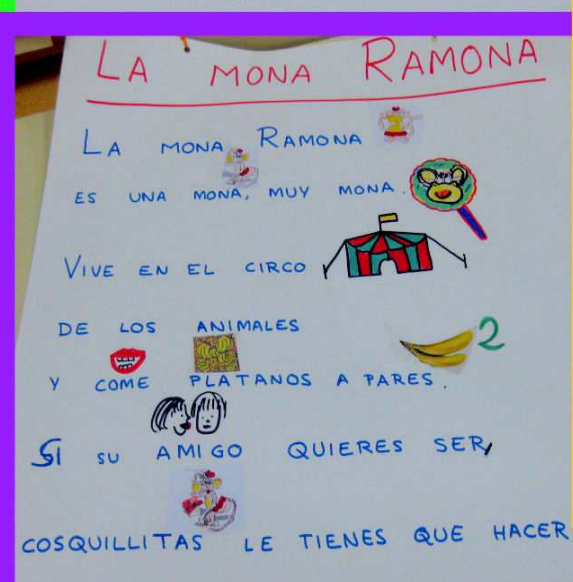 LA MONA RAMONA
LA MONA RAMONA
ES UNA MONA, MUY MONA.
VIVE EN EL CIRCO
DE LOS ANIMALES
2
Y COME PLATANOS A PARES.
SI SU AMIGO QUIERES SER,
COSQUILLITAS LE TIENES QUE HACER